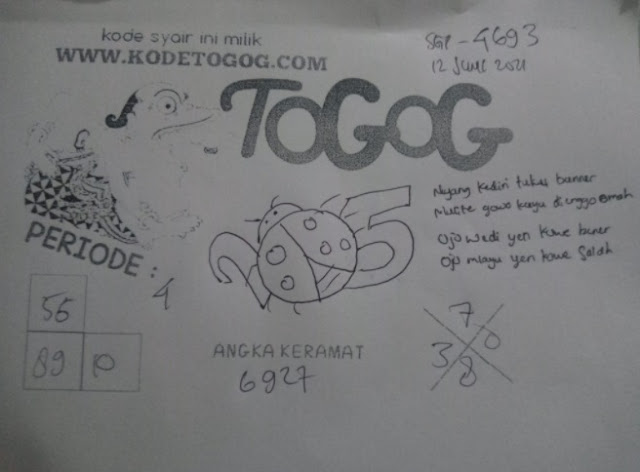 kode syair ini milik
WWW.KODETOGOG.COM
SGP - 4693
12 JUNI 2021
TOGOG
Nyang Kediri tukus banner
Muste gowo kayu di enggo omah
Ojo wedi yen kowe bener
Ojo mlayu yen kowe Salah
PERIODE :
4
2 5
56
89 10
ANGKA KERAMAT
6927
7
3 0
8